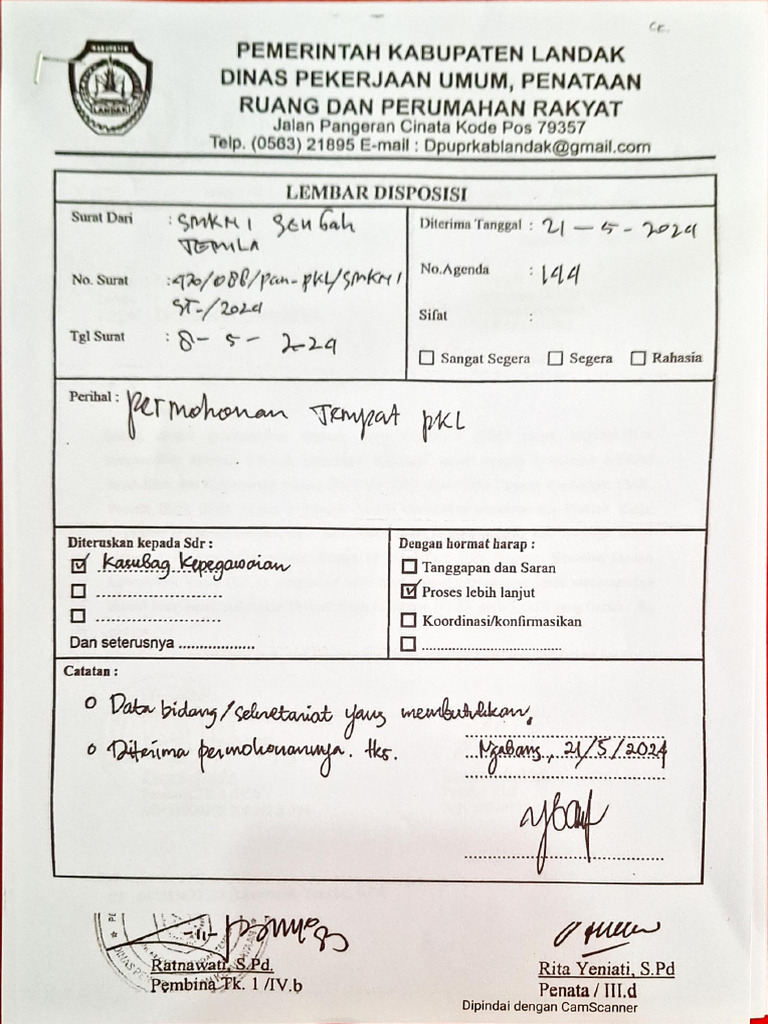 CK.
KABUPATEN
LANDAK
PEMERINTAH KABUPATEN LANDAK
DINAS PEKERJAAN UMUM, PENATAAN
RUANG DAN PERUMAHAN RAKYAT
Jalan Pangeran Cinata Kode Pos 79357
Telp. (0563) 21895 E-mail : Dpuprkablandak@gmail.com
LEMBAR DISPOSISI
Surat Dari : SMKN 1 Sengah
TEMILA
No. Surat : 420/088/pan-PKL/SMKN 1
ST-/2024
Tgl Surat : 8 - 5 - 2024
Diterima Tanggal : 21 - 5 - 2024
No.Agenda : 144
Sifat :
Sangat Segera Segera Rahasia
Perihal : permohonan Tempat PKL
Diteruskan kepada Sdr :
Kasubag Kepegawaian
Dan seterusnya ..................
Dengan hormat harap :
Tanggapan dan Saran
Proses lebih lanjut
Koordinasi/konfirmasikan
Catatan :
o Data bidang/sekretariat yang membutuhkan,
o Diterima permohonannya. tks.
Ngabang, 21/5/2024
Ratnawati, S.Pd.
Pembina Tk. 1 /IV.b
Rita Yeniati, S.Pd
Penata / III.d
Dipindai dengan CamScanner